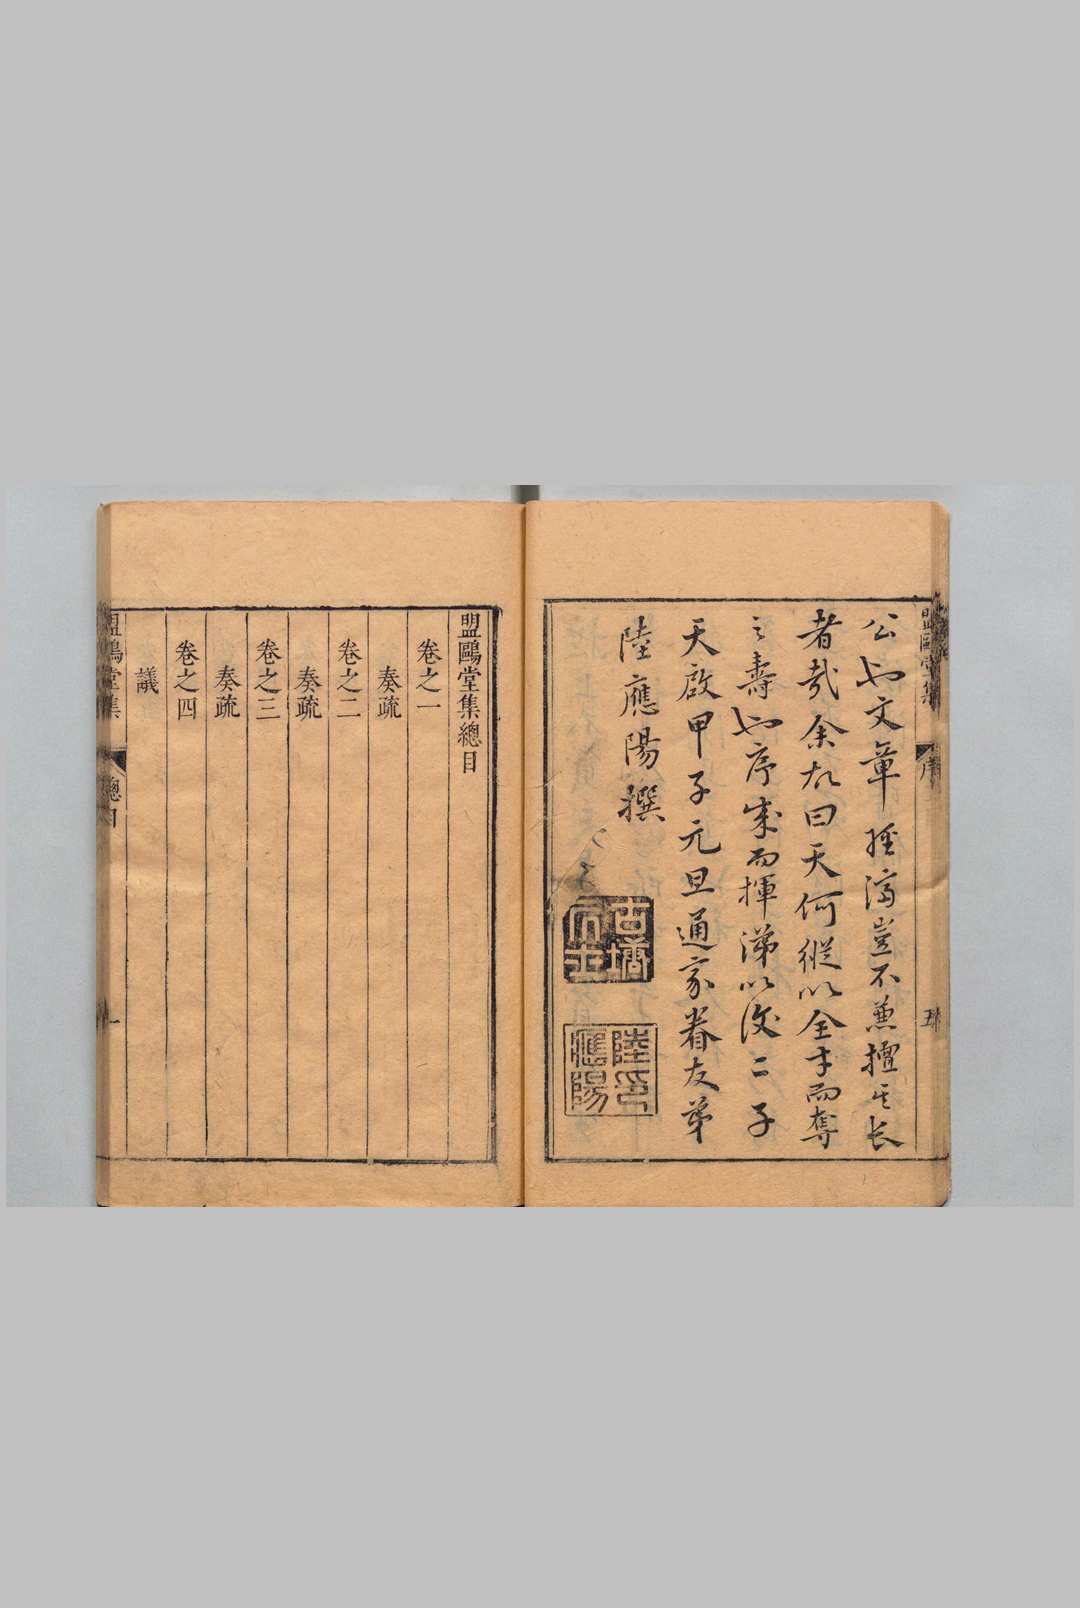 盟鷗堂集
序
五
公也文章經濟豈不兼擅其长
者哉余故曰天何縱以全才而奪
之壽也序成而揮涕以復二子
天啟甲子元旦通家眷友弟
陸應陽撰
陸應陽印
盟鷗堂集總目
卷之一
奏疏
卷之二
奏疏
卷之三
奏疏
卷之四
議
盟鷗堂集
總目
一